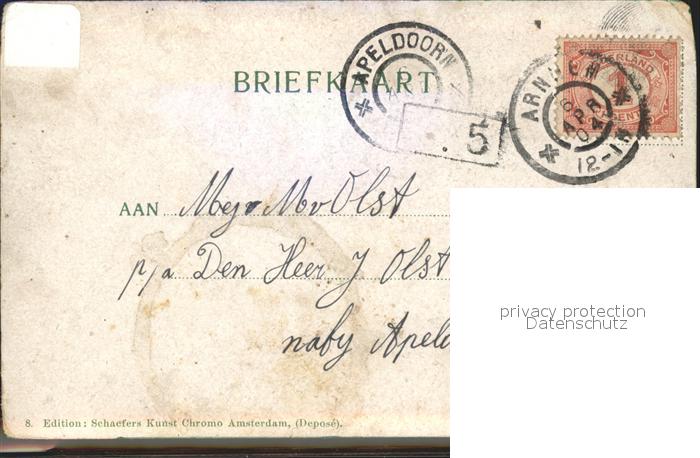 BRIEFKAART
APELDOORN
5
ARNHEM
6 APR 04
12-1N
AAN Mej v Mv Olst
p/a Den Heer J Olst
naby Apeld
privacy protection
Datenschutz
8. Edition: Schaefers Kunst Chromo Amsterdam, (Deposé).